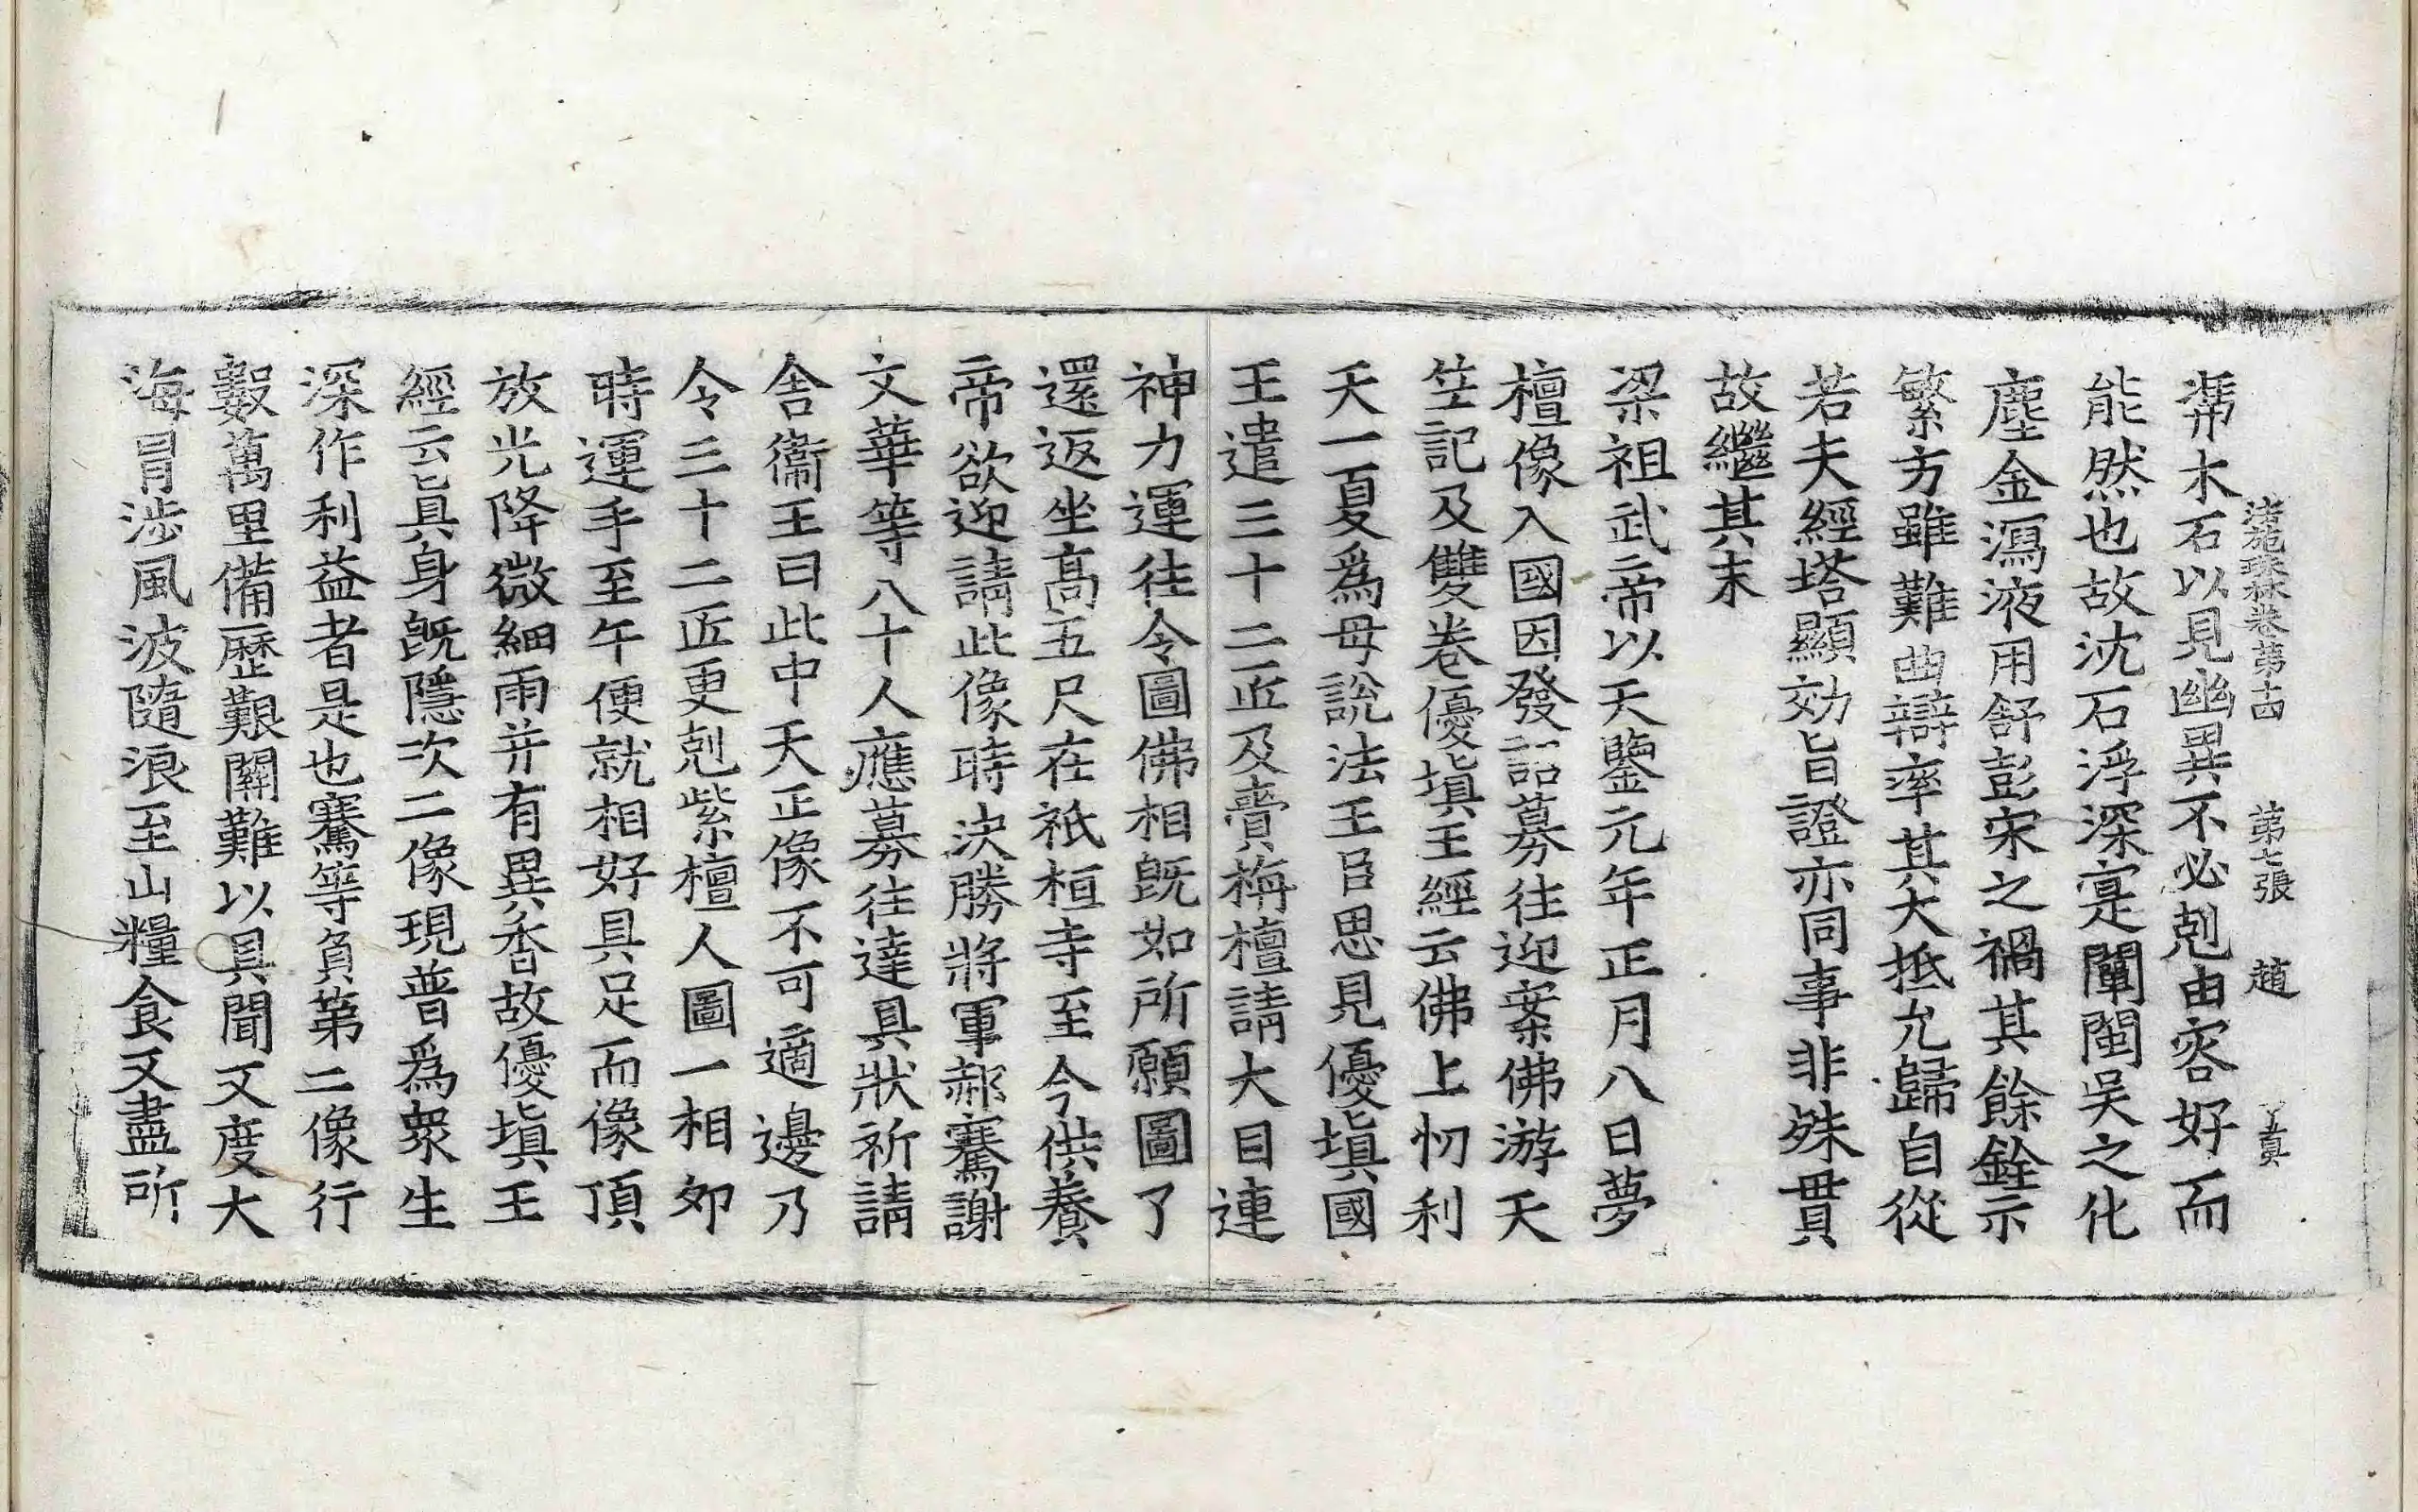 法苑珠林卷第十四 第七張 趙
弊木石以見幽異不必剋由容好而
能然也故沈石浮深寔闡閩吳之化
塵金瀉液用舒彭宋之禍其餘銓示
繁方雖難曲辯率其大抵允歸自從
若夫經塔顯効旨證亦同事非殊貫
故繼其末
梁祖武帝以天鑒元年正月八日夢
檀像入國因發詔募往迎案佛游天
竺記及雙卷優塡王經云佛上忉利
天一夏爲母說法王臣思見優塡國
王遣三十二匠及賫栴檀請大目連
神力運往令圖佛相旣如所願圖了
還返坐高五尺在祇桓寺至今供養
帝欲迎請此像時決勝將軍郝騫謝
文華等八十人應募往達具狀祈請
舍衞王曰此中天正像不可適邊乃
令三十二匠更剋紫檀人圖一相夘
時運手至午便就相好具足而像頂
放光降微細雨并有異香故優塡王
經云眞身旣隱次二像現普爲衆生
深作利益者是也騫等負第二像行
數萬里備歷艱關難以具聞又度大
海冒涉風波隨浪至山糧食又盡所